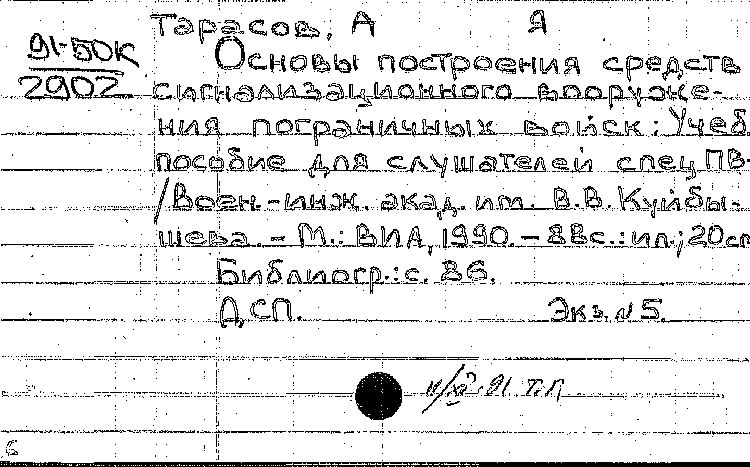 Тарасов, А Я
91-50К
2902
Основы построения средств
сигнализационного вооруже-
ния пограничных войск: Учеб.
пособие для слушателей спец ПВ.
/Воен.-инж. акад. им. В.В. Куйбы-
шева. - М.: ВИА, 1990. - 88с.: ил.; 20см
Библиогр.: с. 86.
ДСП. Экз. №5.
91
6